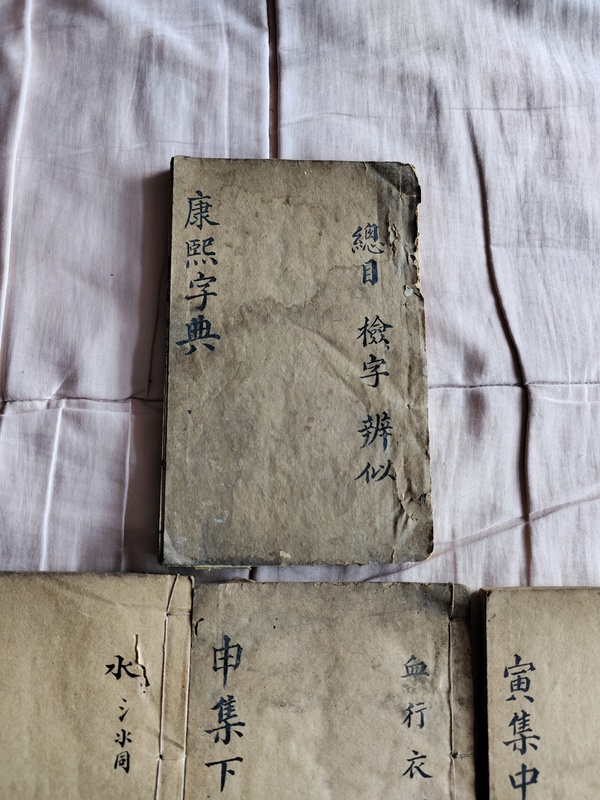 康熙字典
總目 檢字 辨似
水
氵氺同
申集下
血行衣
寅集中